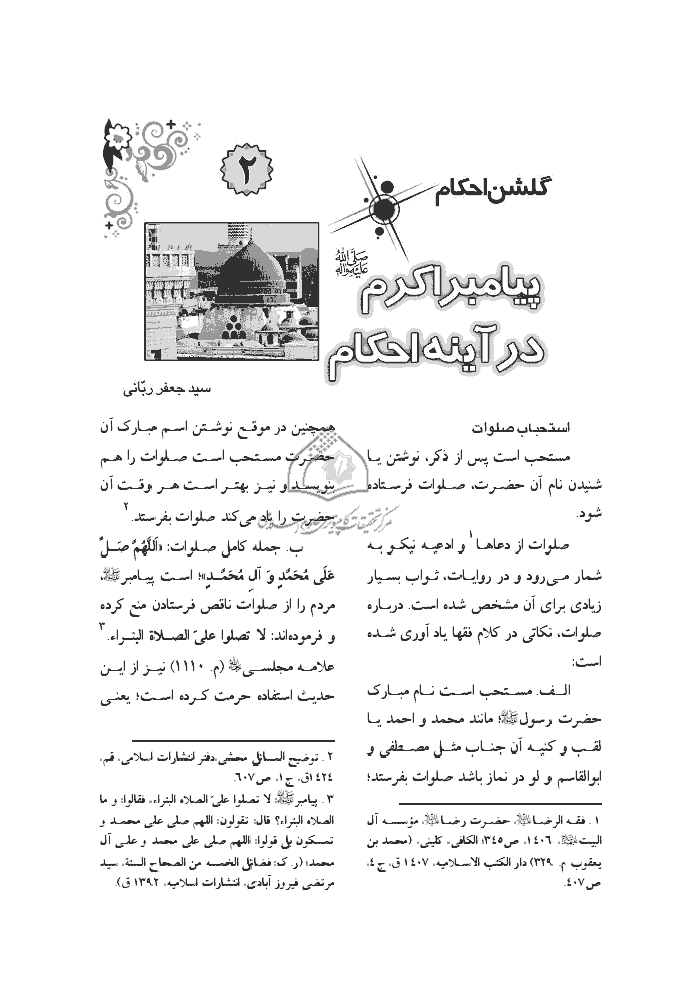 ۲
گلشن احکام
پیامبر اکرم ﷺ
در آینه احکام
سید جعفر ربّانی
استحباب صلوات
مستحب است پس از ذکر، نوشتن یا
شنیدن نام آن حضرت، صلوات فرستاده
شود.
صلوات از دعاها۱ و ادعیه نیکو به
شمار می‌رود و در روایات، ثواب بسیار
زیادی برای آن مشخص شده است. درباره
صلوات، نکاتی در کلام فقها یاد آوری شده
است:
الف. مستحب است نام مبارک
حضرت رسولﷺ؛ مانند محمد و احمد یا
لقب و کنیه آن جناب مثل مصطفی و
ابوالقاسم و لو در نماز باشد صلوات بفرستد؛
۱ . فقه الرضا، حضرت رضا، مؤسسه آل
البیت، ۱۴۰۶، ص۳۴۵؛ الکافی، کلینی، (محمد بن
یعقوب م. ۳۲۹) دار الکتب الاسلامیه، ۱۴۰۷ ق، ج ۴،
ص۴۰۷.
همچنین در موقع نوشتن اسم مبارک آن
حضرت مستحب است صلوات را هم
بنویسد و نیز بهتر است هر وقت آن
حضرت را یاد می‌کند صلوات بفرستد.۲
ب. جمله کامل صلوات: «اَللَّهُمَّ صَلِّ
عَلَی مُحَمَّدٍ وَ آلِ مُحَمَّدٍ»؛ است پیامبرﷺ،
مردم را از صلوات ناقص فرستادن منع کرده
و فرموده‌اند: لا تصلوا علیّ الصلاة البتراء.۳
علامه مجلسی (م. ۱۱۱۰) نیز از این
حدیث استفاده حرمت کرده است؛ یعنی
۲ . توضیح المسائل محشی،دفتر انتشارات اسلامی، قم،
۱۴۲۴ق، ج۱، ص۶۰۷.
۳ . پیامبرﷺ لا تصلوا علیّ الصلاه البتراء، فقالوا: و ما
الصلاه البتراء؟ قال: تقولون: اللهم صلی علی محمد و
تمسکون بل قولوا: اللهم صلی علی محمد و علی آل
محمد؛ (ر. ک: فضائل الخمسه من الصحاح الستة، سید
مرتضی فیروز آبادی، انتشارات اسلامیه، ۱۳۹۲ ق).